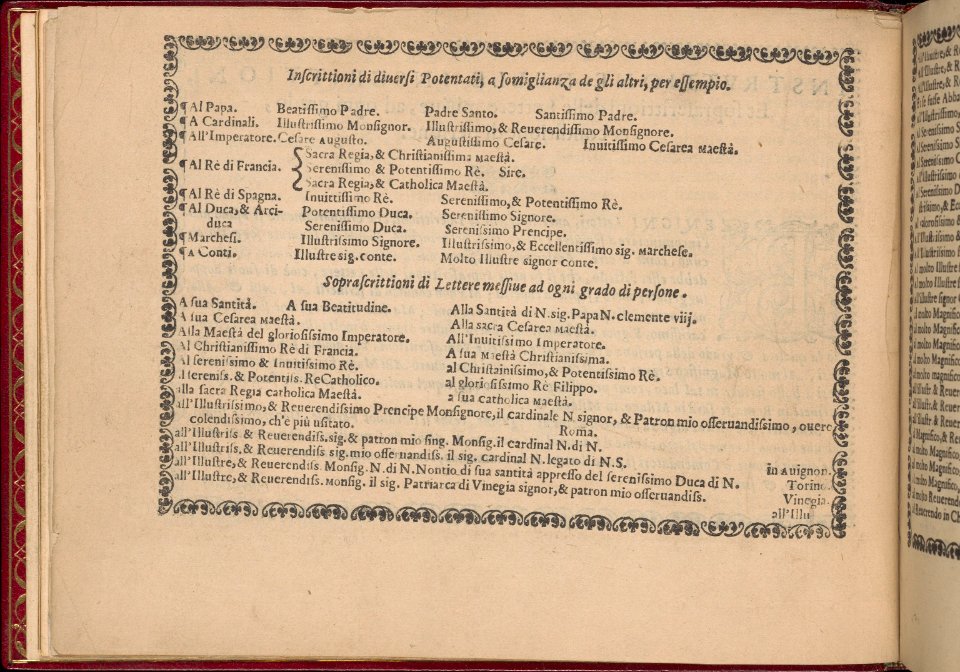 Inscrittioni di diuersi Potentati, a somiglianza de gli altri, per essempio.
¶Al Papa. Beatissimo Padre. Padre Santo. Santissimo Padre.
¶A Cardinali. Illustrissimo Monsignor. Illustrissimo, & Reuerendissimo Monsignore.
¶All'Imperatore. Cesare Augusto. Augustissimo Cesare. Inuitissimo Cesarea Maestà.
Sacra Regia, & Christianissima Maestà.
¶Al Rè di Francia. Serenissimo & Potentissimo Rè. Sire.
Sacra Regia, & Catholica Maestà.
¶Al Rè di Spagna. Inuittissimo Rè. Serenissimo, & Potentissimo Rè.
¶Al Duca, & Arci- Potentissimo Duca. Serenissimo Signore.
duca Serenissimo Duca. Serenissimo Prencipe.
¶Marchesi. Illustrissimo Signore. Illustrissimo, & Eccellentissimo sig. Marchese.
¶A Conti. Illustre sig. conte. Molto Illustre signor conte.
Soprascrittioni di Lettere messiue ad ogni grado di persone.
A sua Santità. A sua Beatitudine. Alla Santità di N. sig. Papa N. clemente viij.
A sua Cesarea Maestà. Alla sacra Cesarea Maestà.
Alla Maestà del gloriosissimo Imperatore. All'Inuitissimo Imperatore.
Al Christianissimo Rè di Francia. A sua Maestà Christianissima.
Al serenissimo & Inuitissimo Rè. al Christainissimo, & Potentissimo Rè.
Al sereniss. & Potentiss. Re Catholico. al gloriosissimo Rè Filippo.
alla sacra Regia catholica Maestà. a sua catholica Maestà.
all'Illustrissimo, & Reuerendissimo Prencipe Monsignore, il cardinale N. signor, & Patron mio osseruandissimo, ouero
colendissimo, ch'è più usitato. Roma.
all'Illustriss & Reuerendiss. sig. & patron mio sing. Monsig. il cardinal N. di N.
all'Illustriss, & Reuerendiss sig. mio osseruandiss. il sig. cardinal N. legato di N. S. in Auignon.
all'Illustre, & Reuerendiss. Monsig. N. di N. Nontio di sua santità appresso del serenissimo Duca di N. Torino.
all'Illustre, & Reuerendiss. Monsig. il sig. Patriarca di Vinegia signor, & patron mio osseruandiss. Vinegia.
all'Illu